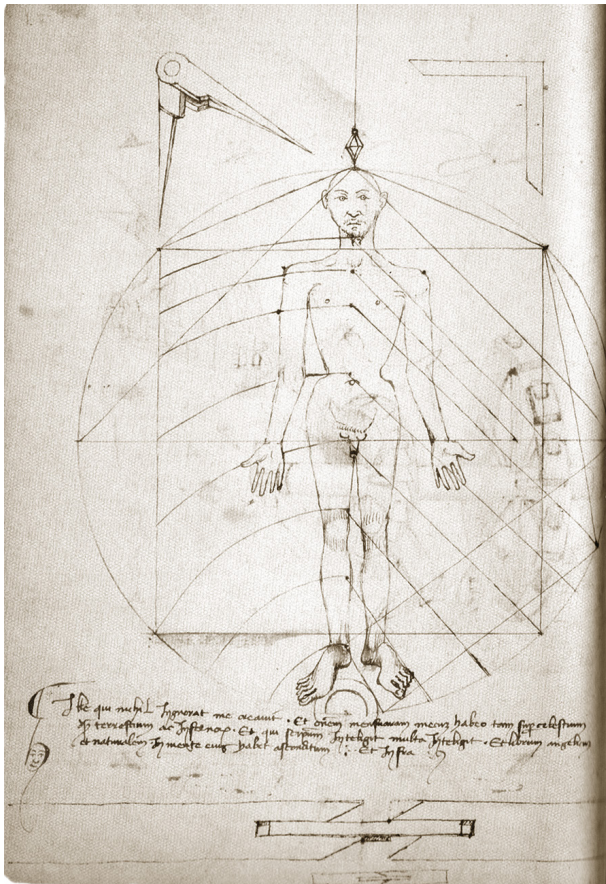 Ille qui nichil Ingnorat me creavit . Et onem mensuram mecum habeo tam sup celestium
terrestrium ac Infernor . Et qui seipsum Intelegit multa Intelegit . Et librum angelicu
et naturalem In mente eius habet asconditum : Et Infra